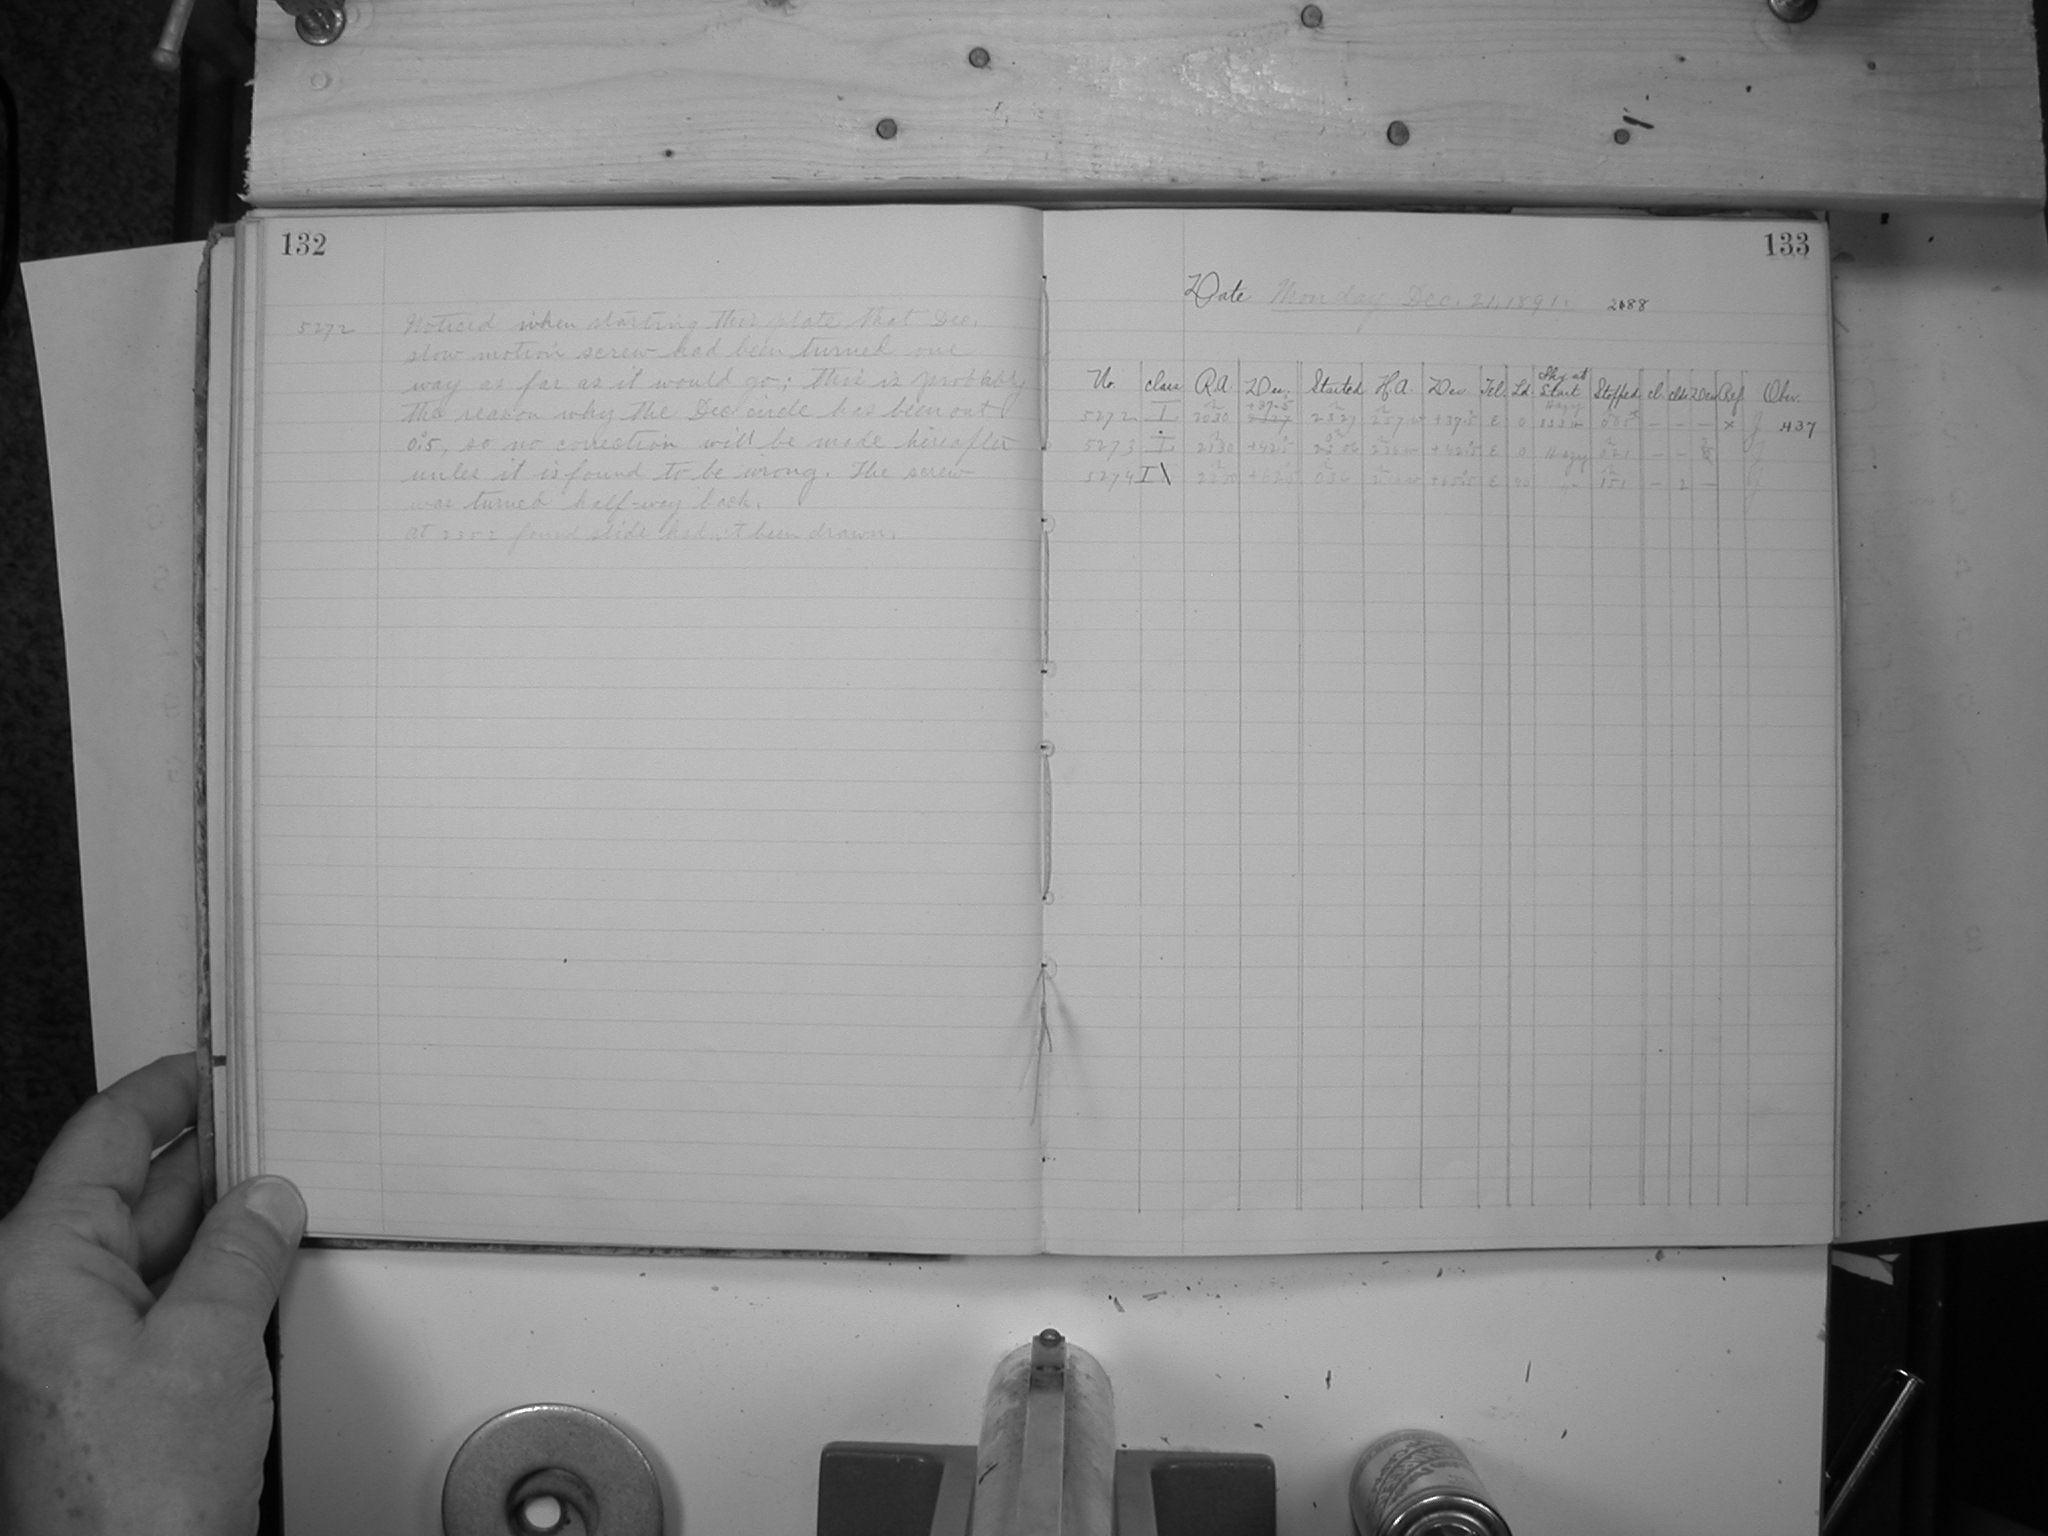 132
5272 Noticed when starting this plate that Dec.
slow motion screw had been turned one
way as far as it would go; this is probably
the reason why the Dec. circle has been out
0.5, so no correction will be made hereafter
unles it is found to be wrong. The screw
was turned half-way back.
At 2352 found slide hadn't been drawn.
133
Date Monday Dec. 21, 1891.
No. class R.A. Dec. Started H.A. Dec Tel. Ld. Sky at Start Stopped cl. Dec Ref. Obsr.
5272 I 20 30 +37.5 23 27 2 57 w +37.5 E 0 Hazy - - - × J 437
5273 I 21 30 +42.5 +42.5 E 0 Hazy 0 21 - - J
5274 I\ E 1 51 - 2 - J